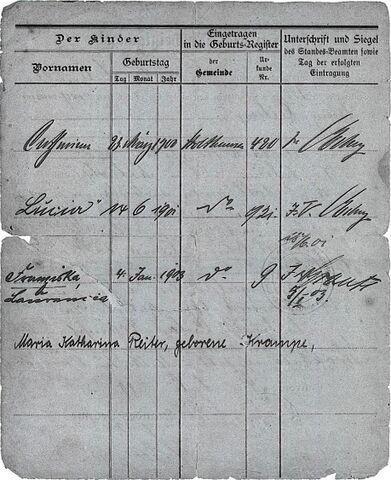 Der Kinder
Eingetragen
in die Geburts-Register
Unterschrift und Siegel
des Standes-Beamten sowie
Tag der erfolgten
Eintragung
Vornamen
Geburtstag
Tag Monat Jahr
der
Gemeinde
Ur-
kunde
Nr.
März 1900 Holthausen 420
Lucia" 14 6 1901 do 921 I.V.
Franziska 4. Jan. 1903 do 9
Laurencia
Maria Katharina Reiter, geborene Krampe,